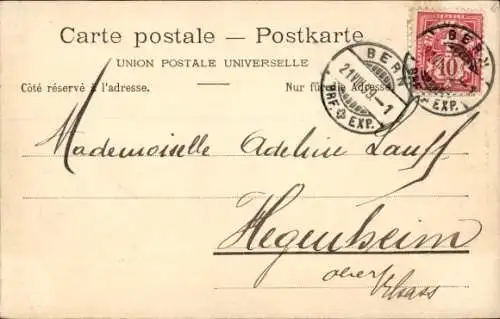 Carte postale — Postkarte
UNION POSTALE UNIVERSELLE
Côté réservé à l'adresse.
Nur für die Adresse.
BERN
21.VIII.99.-1
BRF. EXP.
BERN
BRF. EXP.
10
Mademoiselle Adeline Lauff
Hegenheim
ober Elsass